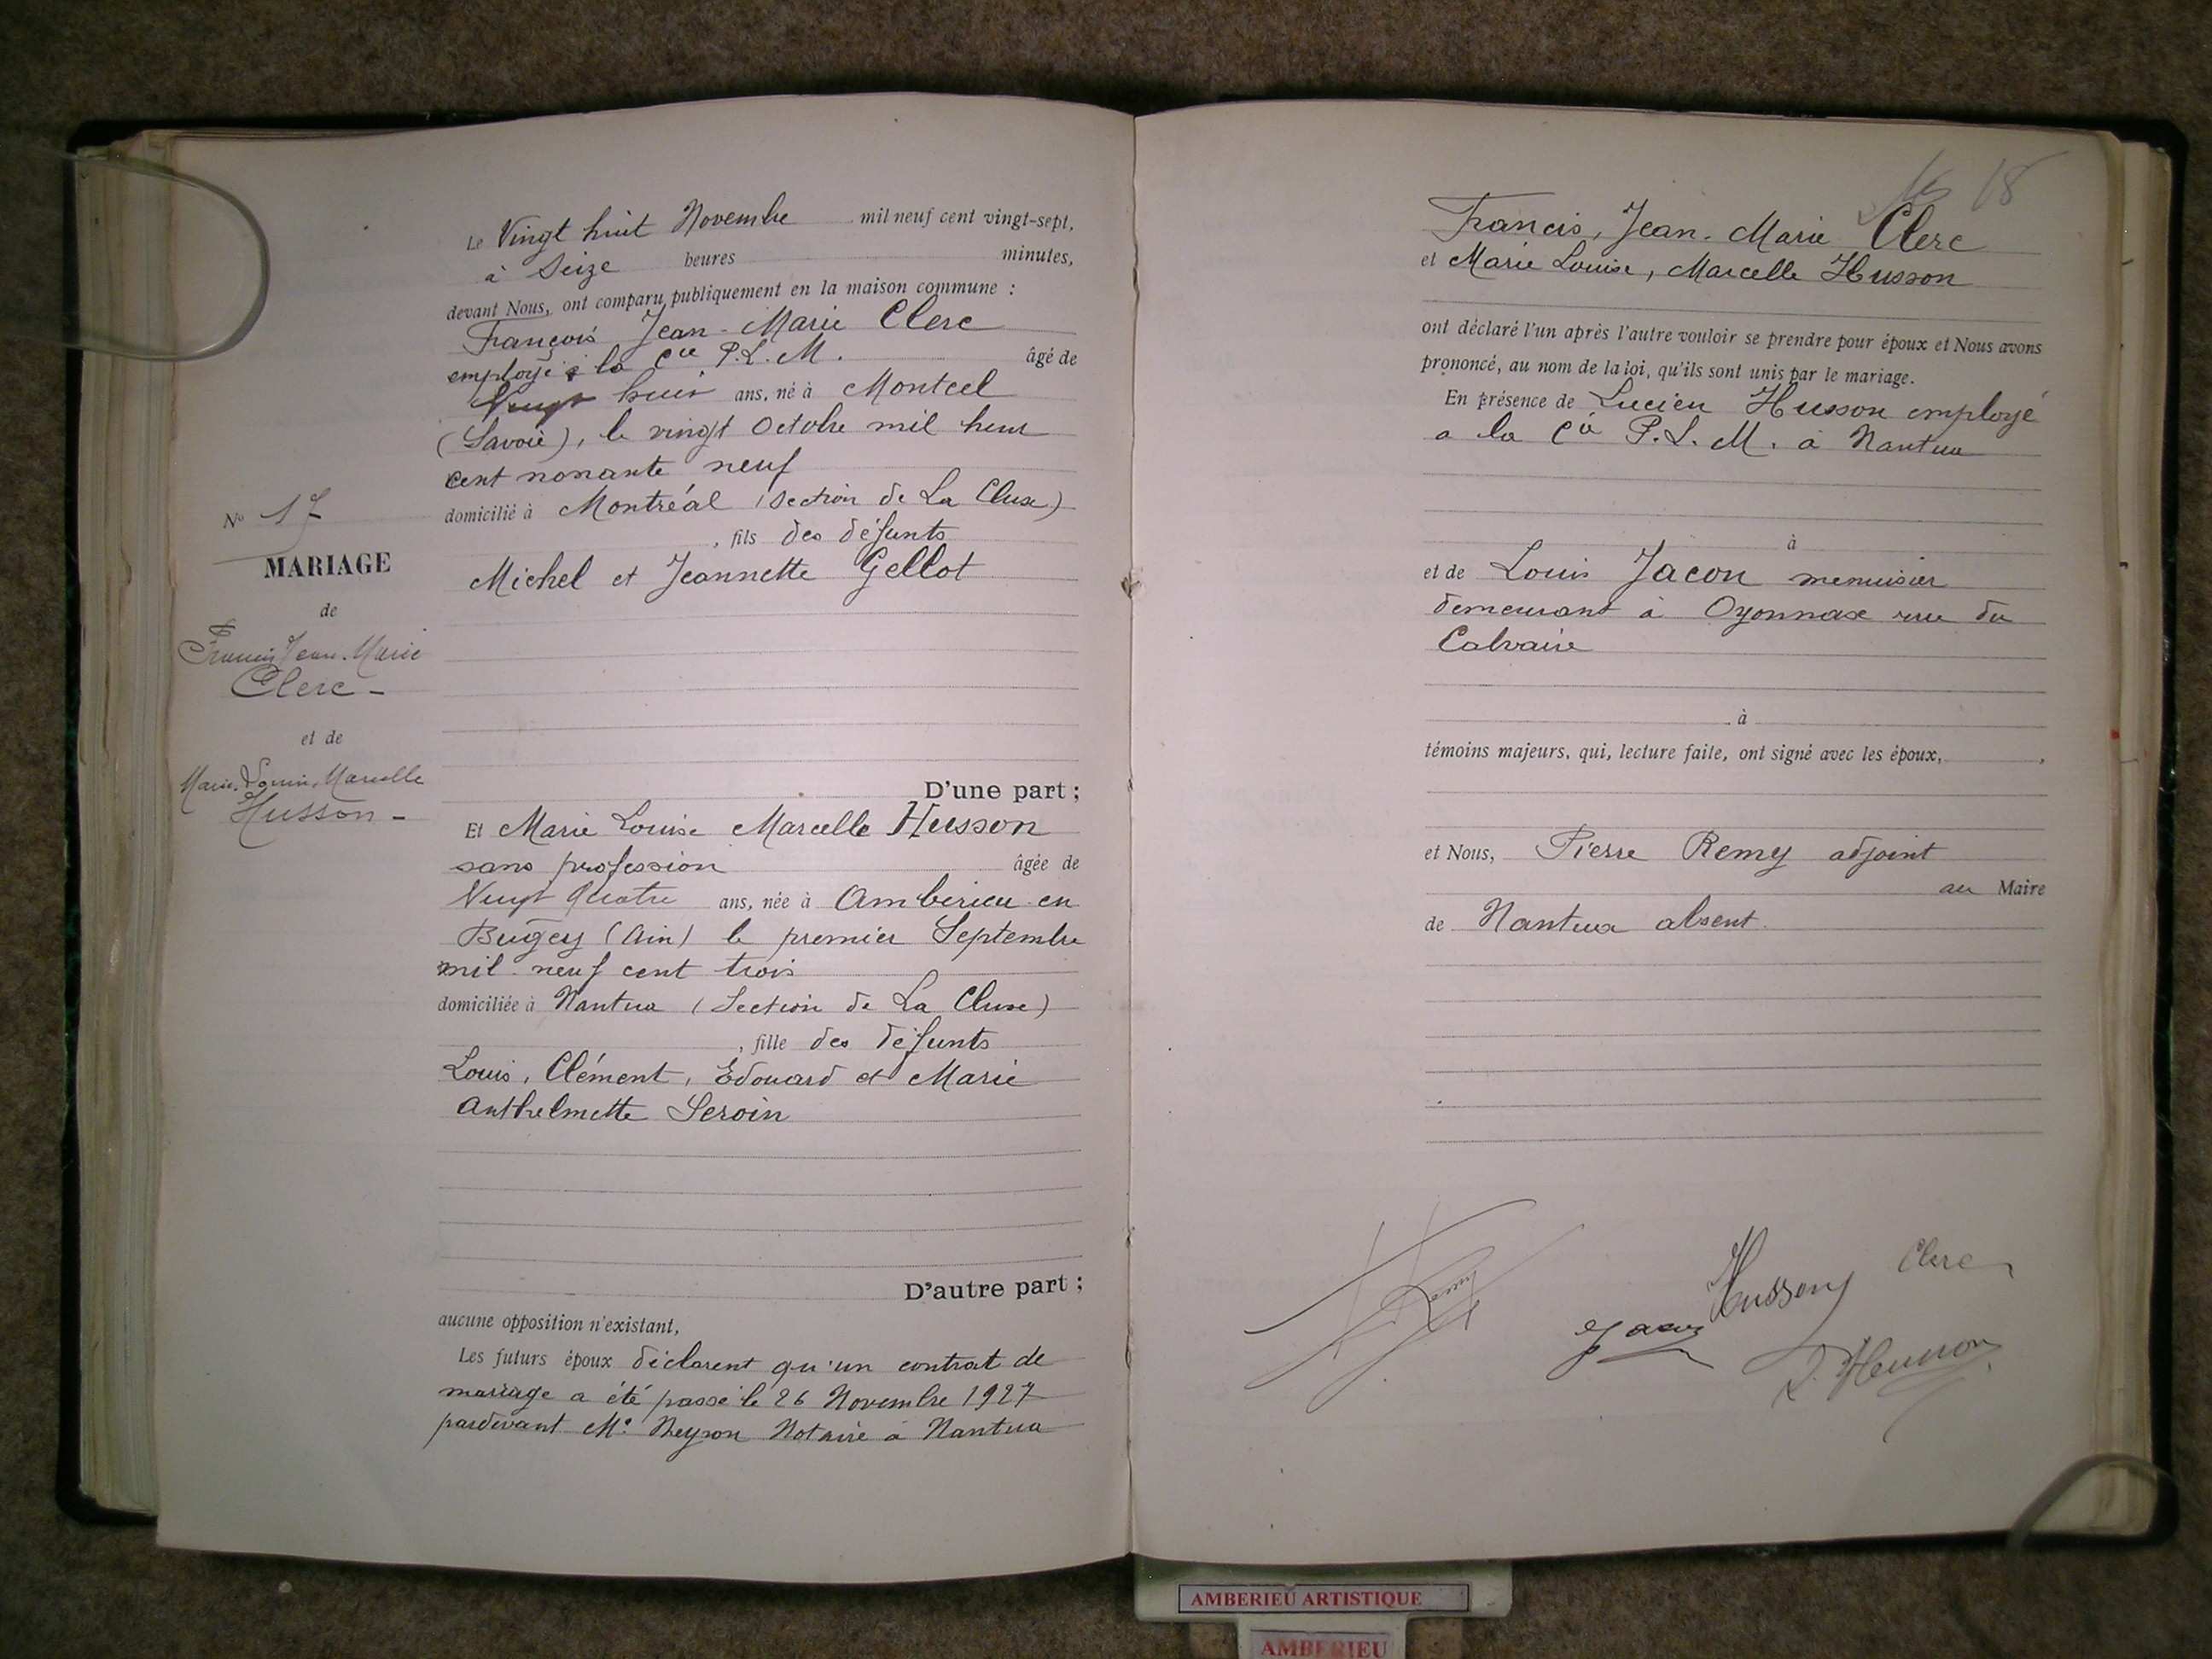 Le Vingt huit Novembre mil neuf cent vingt-sept,
à Seize heures minutes,
devant Nous, ont comparu publiquement en la maison commune :
François Jean-Marie Clerc
employé à la Cie P.L.M. âgé de
Vingt huit ans, né à Montcel
(Savoie), le vingt Octobre mil huit
cent nonante neuf
domicilié à Montréal (Section de La Cluse)
, fils des défunts
Michel et Jeannette Gellot
N° 17
MARIAGE
de
Francis Jean-Marie
Clerc -
et de
Marie-Louise, Marcelle
Husson -
D'une part ;
Et Marie Louise Marcelle Husson
sans profession âgée de
Vingt quatre ans, née à Ambérieu en
Bugey (Ain) le premier Septembre
mil neuf cent trois
domiciliée à Nantua (Section de La Cluse)
, fille des défunts
Louis, Clément, Edouard et Marie
Anthelmette Seroin
D'autre part ;
aucune opposition n'existant,
Les futurs époux déclarent qu'un contrat de
mariage a été passé le 26 Novembre 1927
pardevant Me Neyron Notaire à Nantua
18
Francis, Jean-Marie Clerc
et Marie Louise, Marcelle Husson
ont déclaré l'un après l'autre vouloir se prendre pour époux et Nous avons
prononcé, au nom de la loi, qu'ils sont unis par le mariage.
En présence de Lucien Husson employé
a la Cie P.L.M. à Nantua
à
et de Louis Jacon menuisier
demeurant à Oyonnax rue du
Calvaire
à
témoins majeurs, qui, lecture faite, ont signé avec les époux, ,
et Nous, Pierre Remy adjoint
au Maire
de Nantua absent
Remy
Jacon
Husson
Clerc
L. Husson
AMBERIEU ARTISTIQUE
AMBERIEU